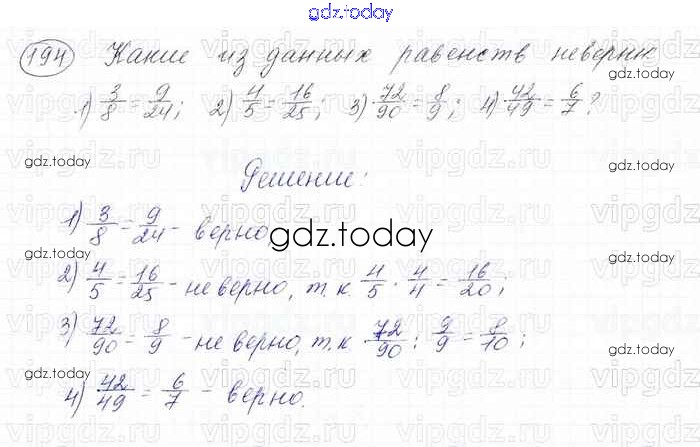 gdz.today
194 Какие из данных равенств неверны
1) 3/8 = 9/24; 2) 4/5 = 16/25; 3) 72/90 = 8/9; 4) 42/49 = 6/7?
gdz.today gdz.today gdz.today
Решение:
1) 3/8 = 9/24 - верно,
gdz.today
2) 4/5 = 16/25 - неверно, т.к. 4/5 · 4/4 = 16/20;
3) 72/90 = 8/9 - неверно, т.к 72/90 : 9/9 = 8/10;
gdz.today gdz.today gdz.today
4) 42/49 = 6/7 - верно.